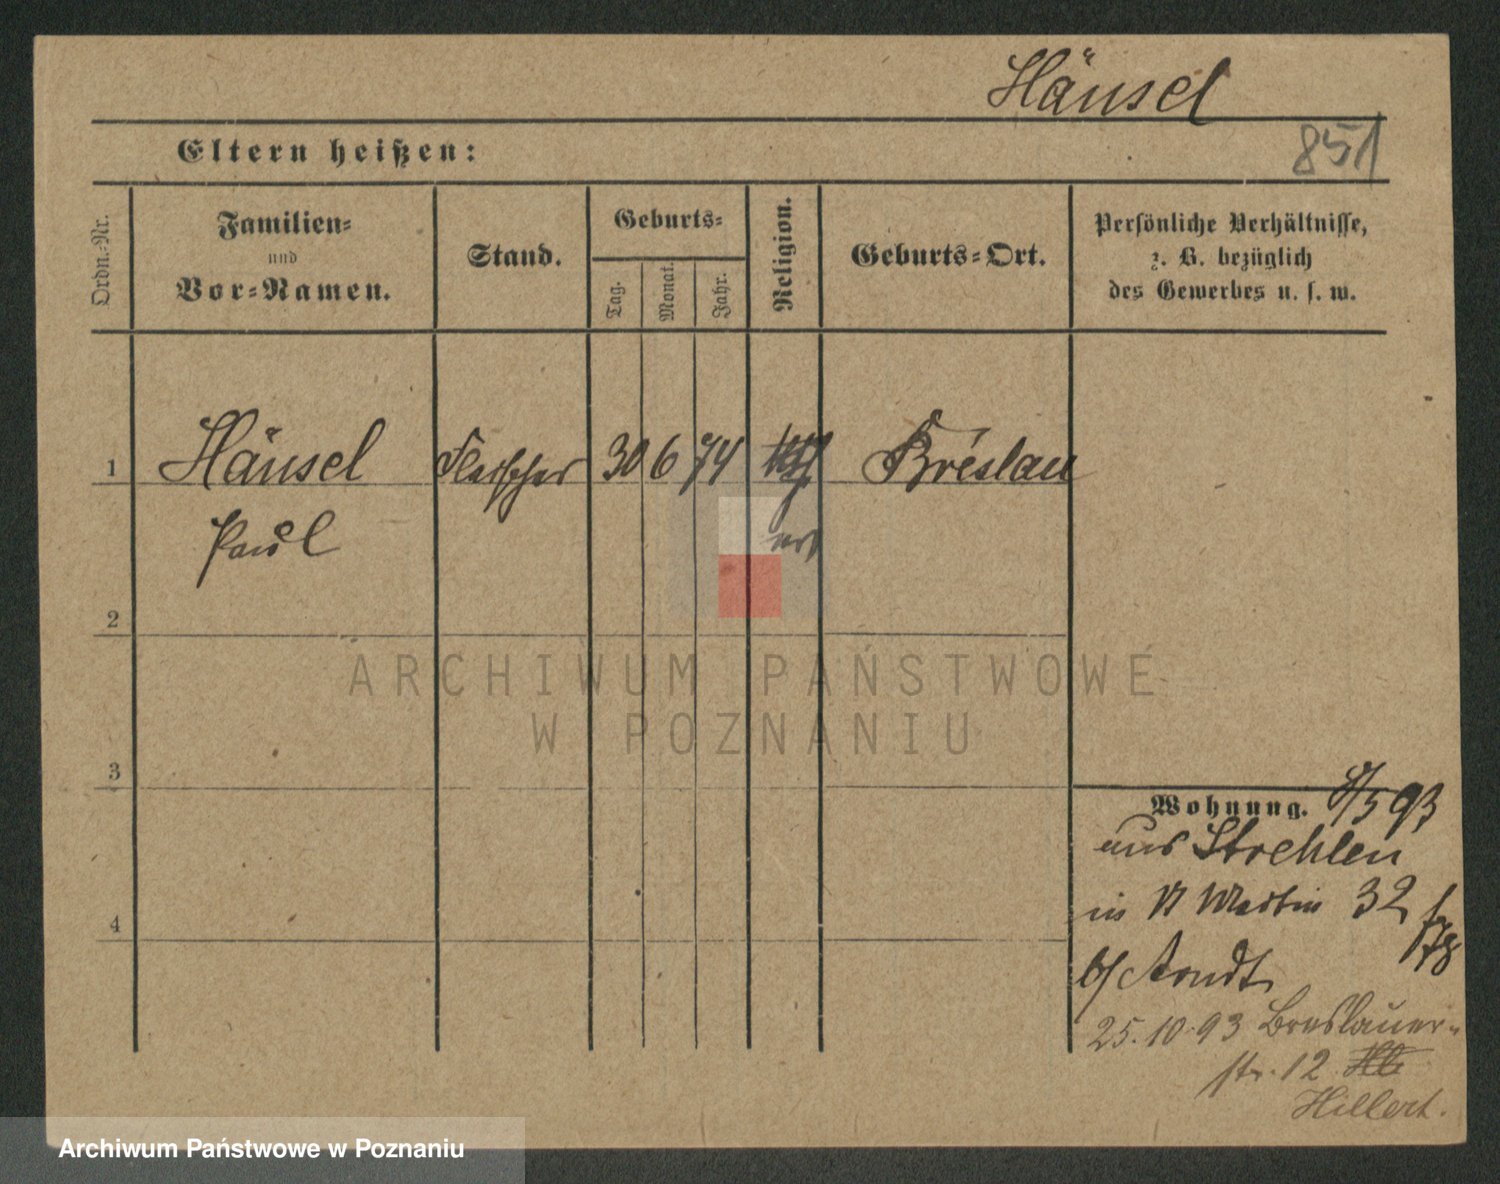 Hänsel
851
Eltern heißen:
Ordn.-Nr.
Familien-
und
Vor-Namen.
Stand.
Geburts-
Tag.
Monat.
Jahr.
Religion.
Geburts-Ort.
Persönliche Verhältnisse,
z. B. bezüglich
des Gewerbes u. s. w.
1 Hänsel Fleischer 30 6 74 Breslau
Paul
2
3
4
Wohnung. 8/5 93
aus Strehlen
in St Martin 32
b/ Arndt
25.10.93 Breslauer-
str. 12
Hillert.
ARCHIWUM PAŃSTWOWE
W POZNANIU
Archiwum Państwowe w Poznaniu